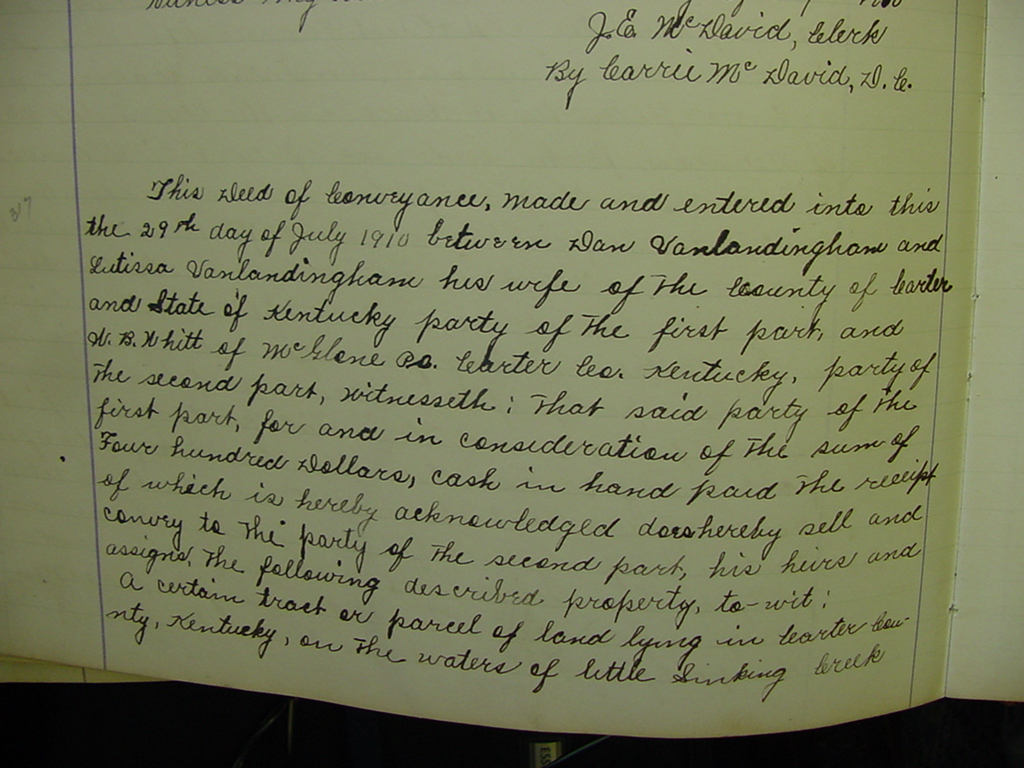 J. E. McDavid, Clerk
By Carrie McDavid, D. C.
317
This Deed of Conveyance, made and entered into this
the 29th day of July 1910 between Dan Vanlandingham and
Lutissa Vanlandingham his wife of the County of Carter
and State of Kentucky party of the first part, and
W. B. Whitt of McGlone P.o. Carter Co. Kentucky, party of
the second part, witnesseth: that said party of the
first part, for and in consideration of the sum of
Four hundred Dollars, cash in hand paid the receipt
of which is hereby acknowledged does hereby sell and
convey to the party of the second part, his heirs and
assigns, the following described property, to-wit:
A certain tract or parcel of land lying in Carter Cou-
nty, Kentucky, on the waters of little Sinking Creek